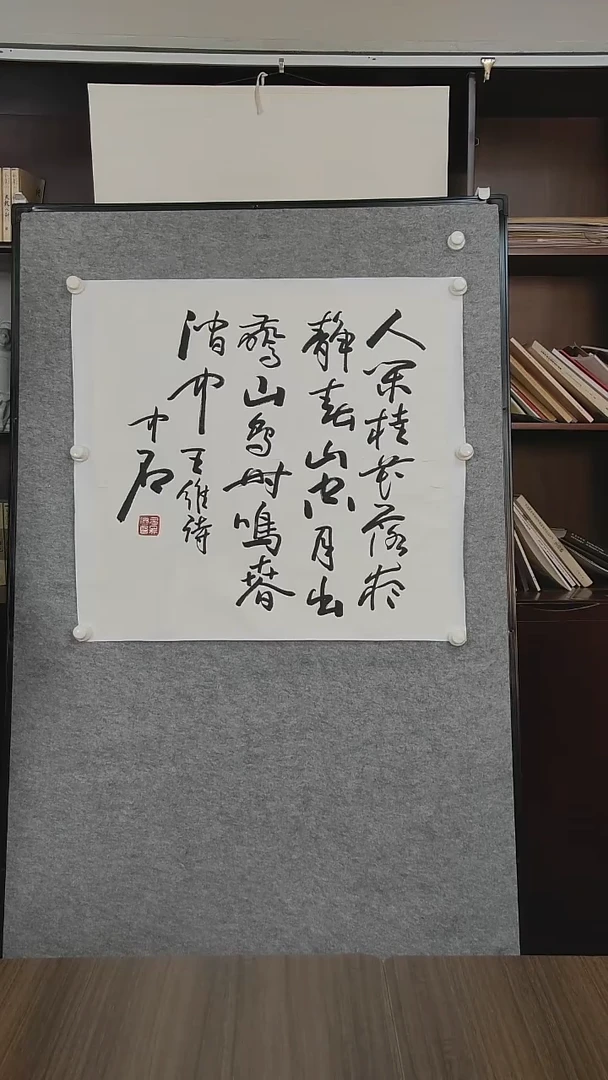 人闲桂花落夜
静春山空月出
驚山鸟时鳴春
涧中 王維诗
中石